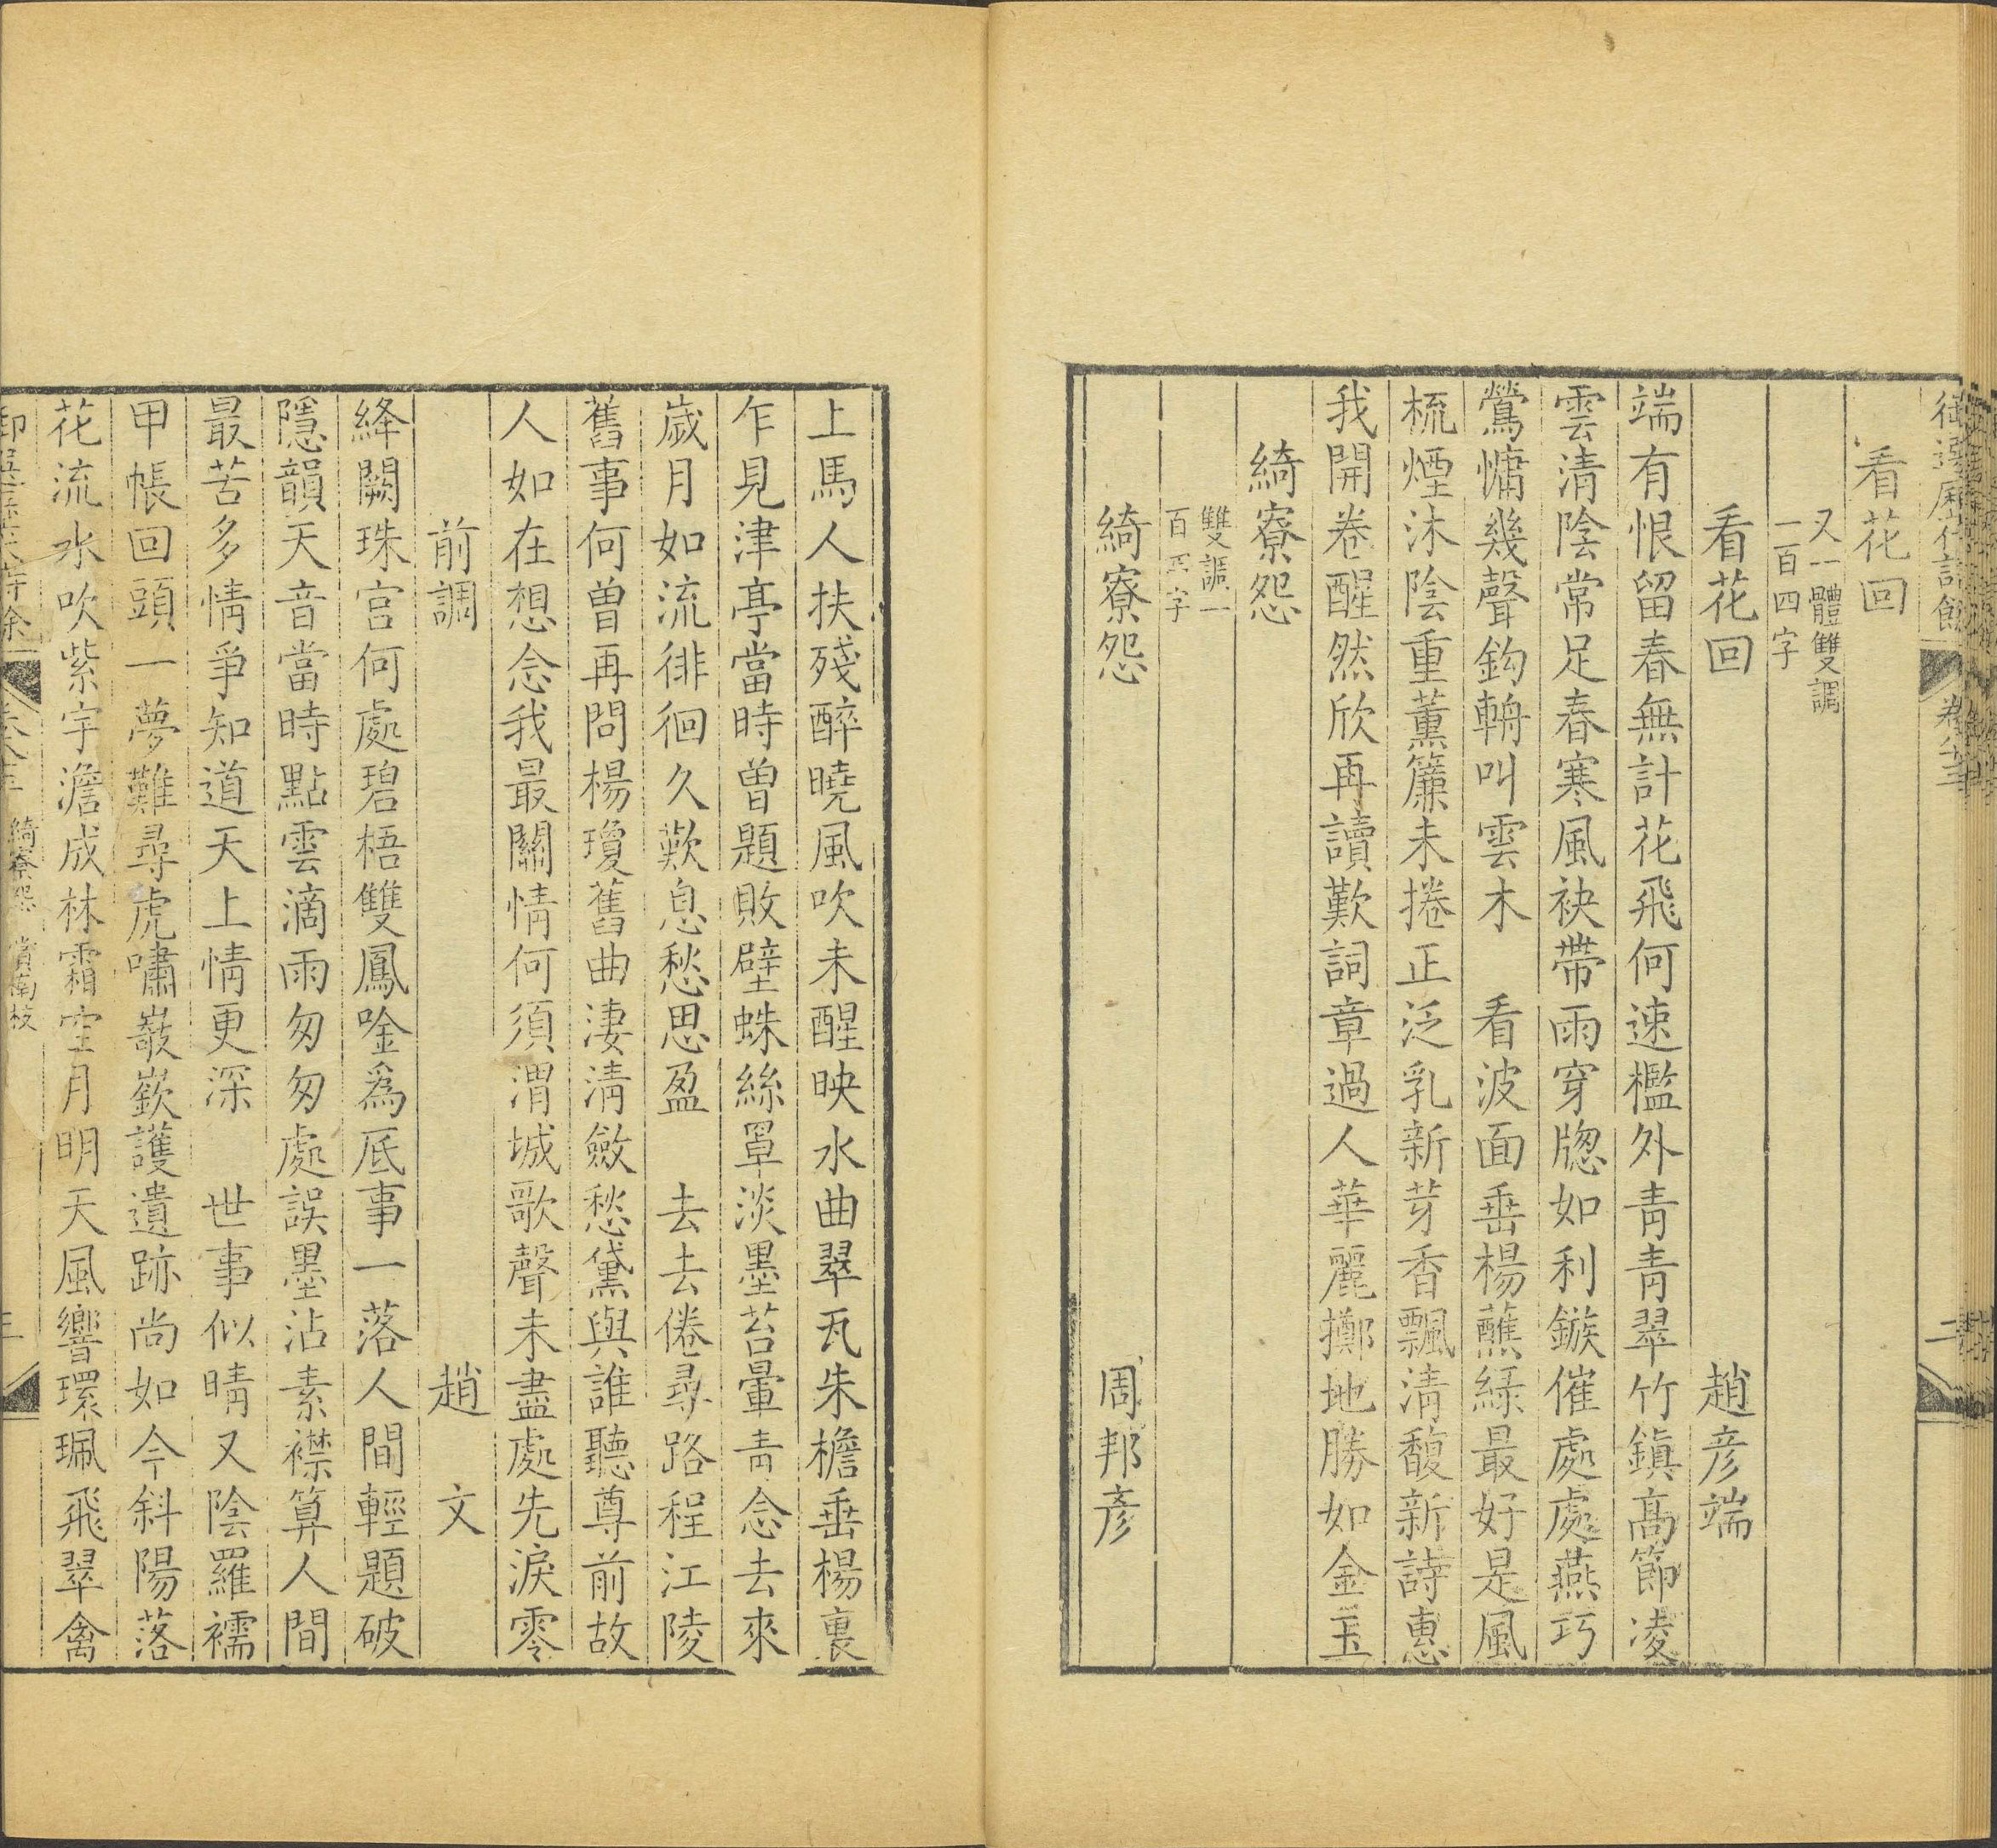 御選歷代詩餘 卷八十三 二
看花回
又一體雙調
一百四字
看花回 趙彥端
端有恨留春無計花飛何速檻外青青翠竹鎮高節凌
雲清陰常足春寒風袂帶雨穿牕如利鏃催處處燕巧
鶯慵幾聲鈎輈叫雲木 看波面垂楊蘸綠最好是風
梳煙沐陰重薰簾未捲正泛乳新芽香飄清馥新詩惠
我開卷醒然欣再讀歎詞章過人華麗擲地勝如金玉
綺寮怨
雙調一
百四字
綺寮怨 周邦彥
上馬人扶殘醉曉風吹未醒映水曲翠瓦朱檐垂楊裏
乍見津亭當時曾題敗壁蛛絲罩淡墨苔暈青念去來
歲月如流徘徊久歎息愁思盈 去去倦尋路程江陵
舊事何曾再問楊瓊舊曲淒清斂愁黛與誰聽尊前故
人如在想念我最關情何須渭城歌聲未盡處先淚零
前調 趙文
絳闕珠宮何處碧梧雙鳳唫爲底事一落人間輕題破
隱韻天音當時點雲滴雨匆匆處誤墨沾素襟算人間
最苦多情爭知道天上情更深 世事似晴又陰羅襦
甲帳回頭一夢難尋虎嘯巖嶔護遺跡尚如今斜陽落
花流水吹紫宇澹成林霜空月明天風響環珮飛翠禽
綺寮怨 賞南枝
三